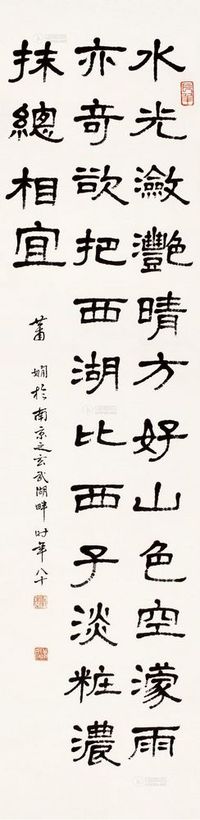 水光瀲灧晴方好山色空濛雨
亦奇欲把西湖比西子淡粧濃
抹總相宜
蕭嫻於南京之玄武湖畔時年八十